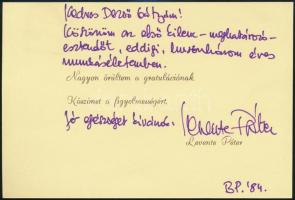 Kedves Dezső bátyám!
Köszönöm az első kilenc – meghatározó –
esztendőt, eddigi, huszonhárom éves
munkáséletemben.
Nagyon örültem a gratulációnak.
Köszönet a figyelmességért.
Jó egészséget kívánok: Levente Péter
Levente Péter
BP. '84.